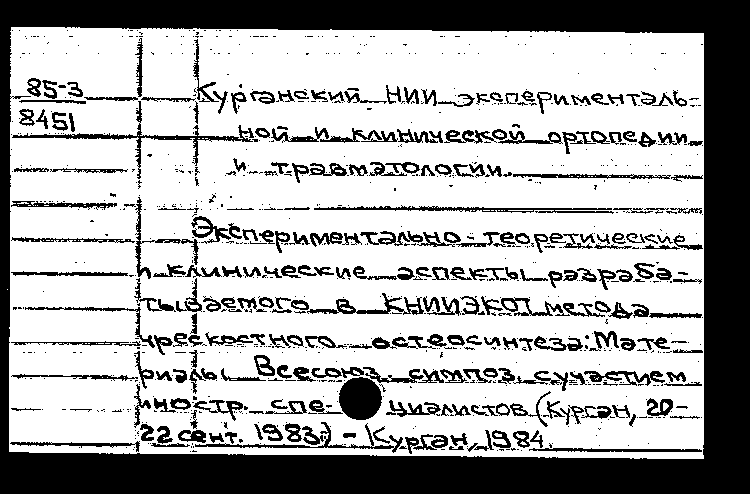 85-3
8451
Курганский НИИ эксперименталь-
ной и клинической ортопедии
и травматологии.
Экспериментально-теоретические
и клинические аспекты разраба-
тываемого в КНИИЭКОТ метода
чрескостного остеосинтеза: Мате-
риалы Всесоюз. симпоз. с участием
иностр. спе- циалистов (Курган, 20-
22 сент. 1983г.) - Курган, 1984.